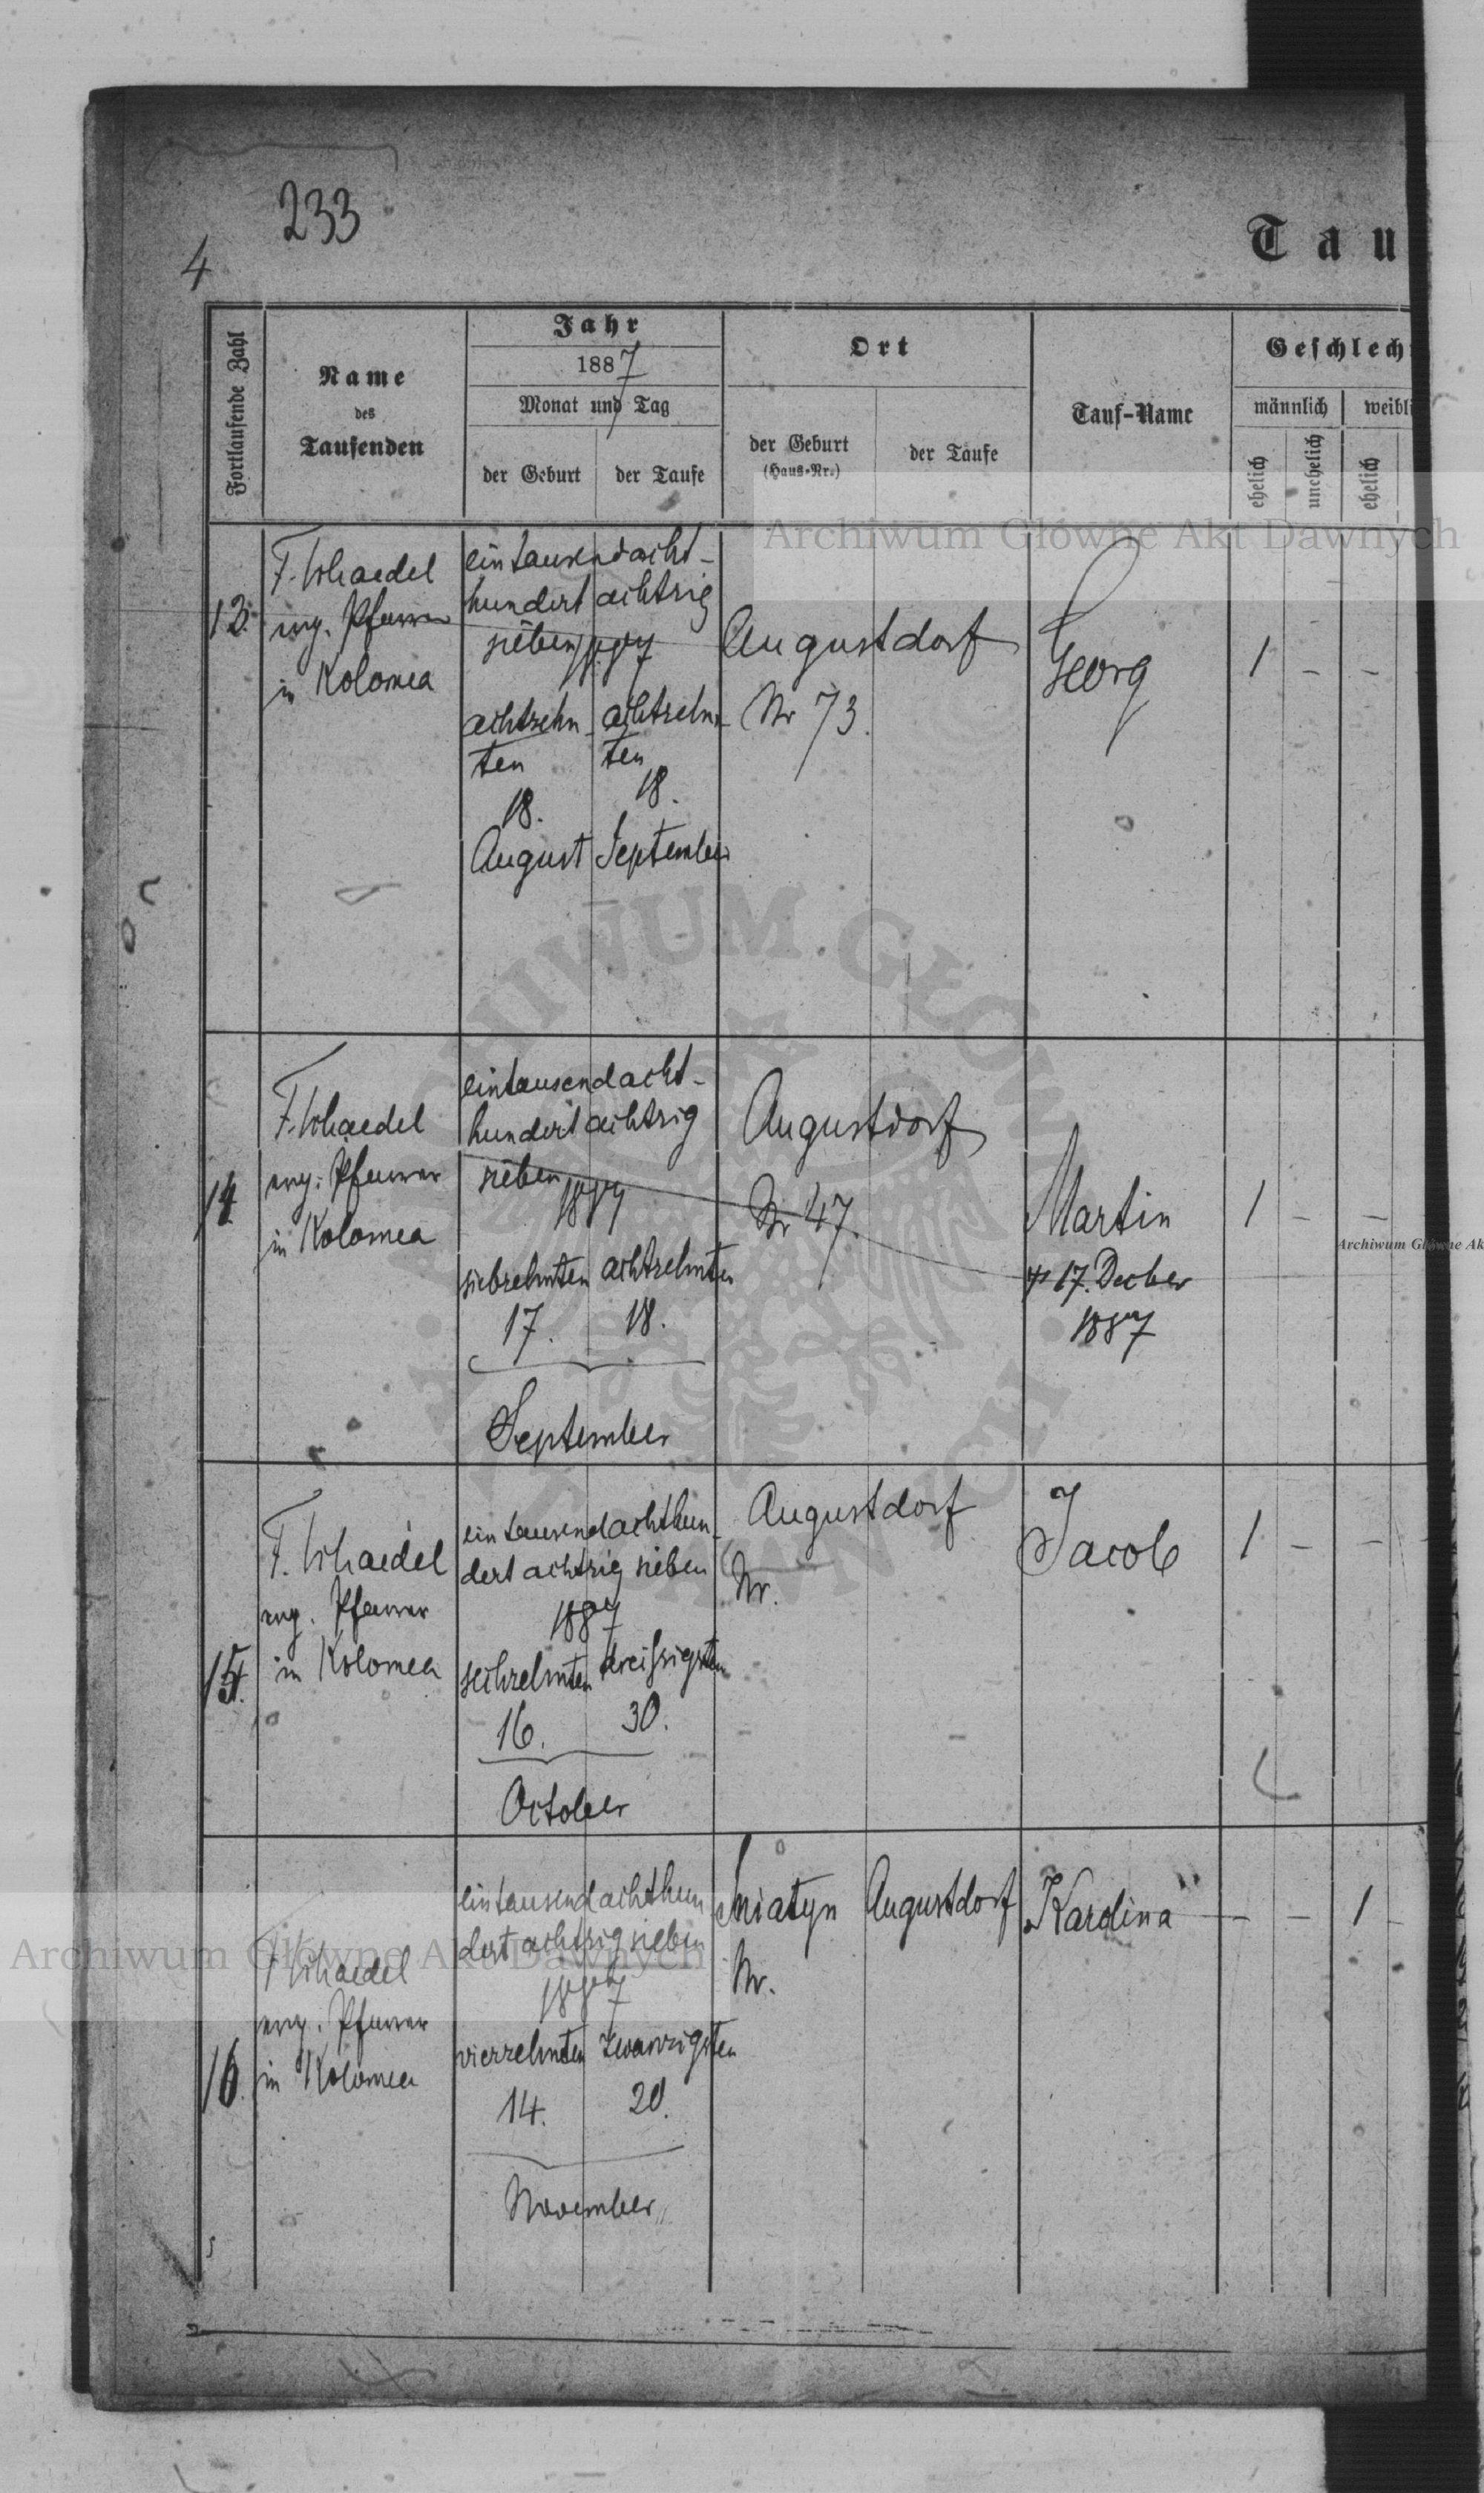 233
4
Tau
Fortlaufende Zahl
Name
des
Taufenden
Jahr
1887
Monat und Tag
der Geburt
der Taufe
Ort
der Geburt
(Haus-Nr.)
der Taufe
Tauf-Name
Geschlech
männlich
weibli
ehelich
unehelich
ehelich
Archiwum Główne Akt Dawnych
13.
F. Schaedel
evg. Pfarrer
in Kolomea
eintausendacht-
hundert achtzig
sieben 1887
achtzehn-
ten
18.
August
achtzehn-
ten
18.
September
Augustdorf
Nr 73.
Georg
1 - -
14
F. Schaedel
evg. Pfarrer
in Kolomea
eintausendacht-
hundert achtzig
sieben
1887
siebzehnten achtzehnten
17. 18.
September
Augustdorf
Nr 47.
Martin
17. Decber
1887
1 - -
Archiwum Główne Ak
15.
F. Schaedel
evg. Pfarrer
in Kolomea
eintausendachthun-
dert achtzig sieben
1887
sechzehnten dreißigsten
16. 30.
October
Augustdorf
Nr.
Jacob
1 - -
16.
F. Schaedel
evg. Pfarrer
in Kolomea
eintausendachthun
dert achtzig sieben
1887
vierzehnten zwanzigsten
14. 20.
November
Sniatyn
Nr.
Augustdorf
Karolina
- - 1 -
Archiwum Główne Akt Dawnych
ARCHIWUM GŁÓWNE AKT DAWNYCH